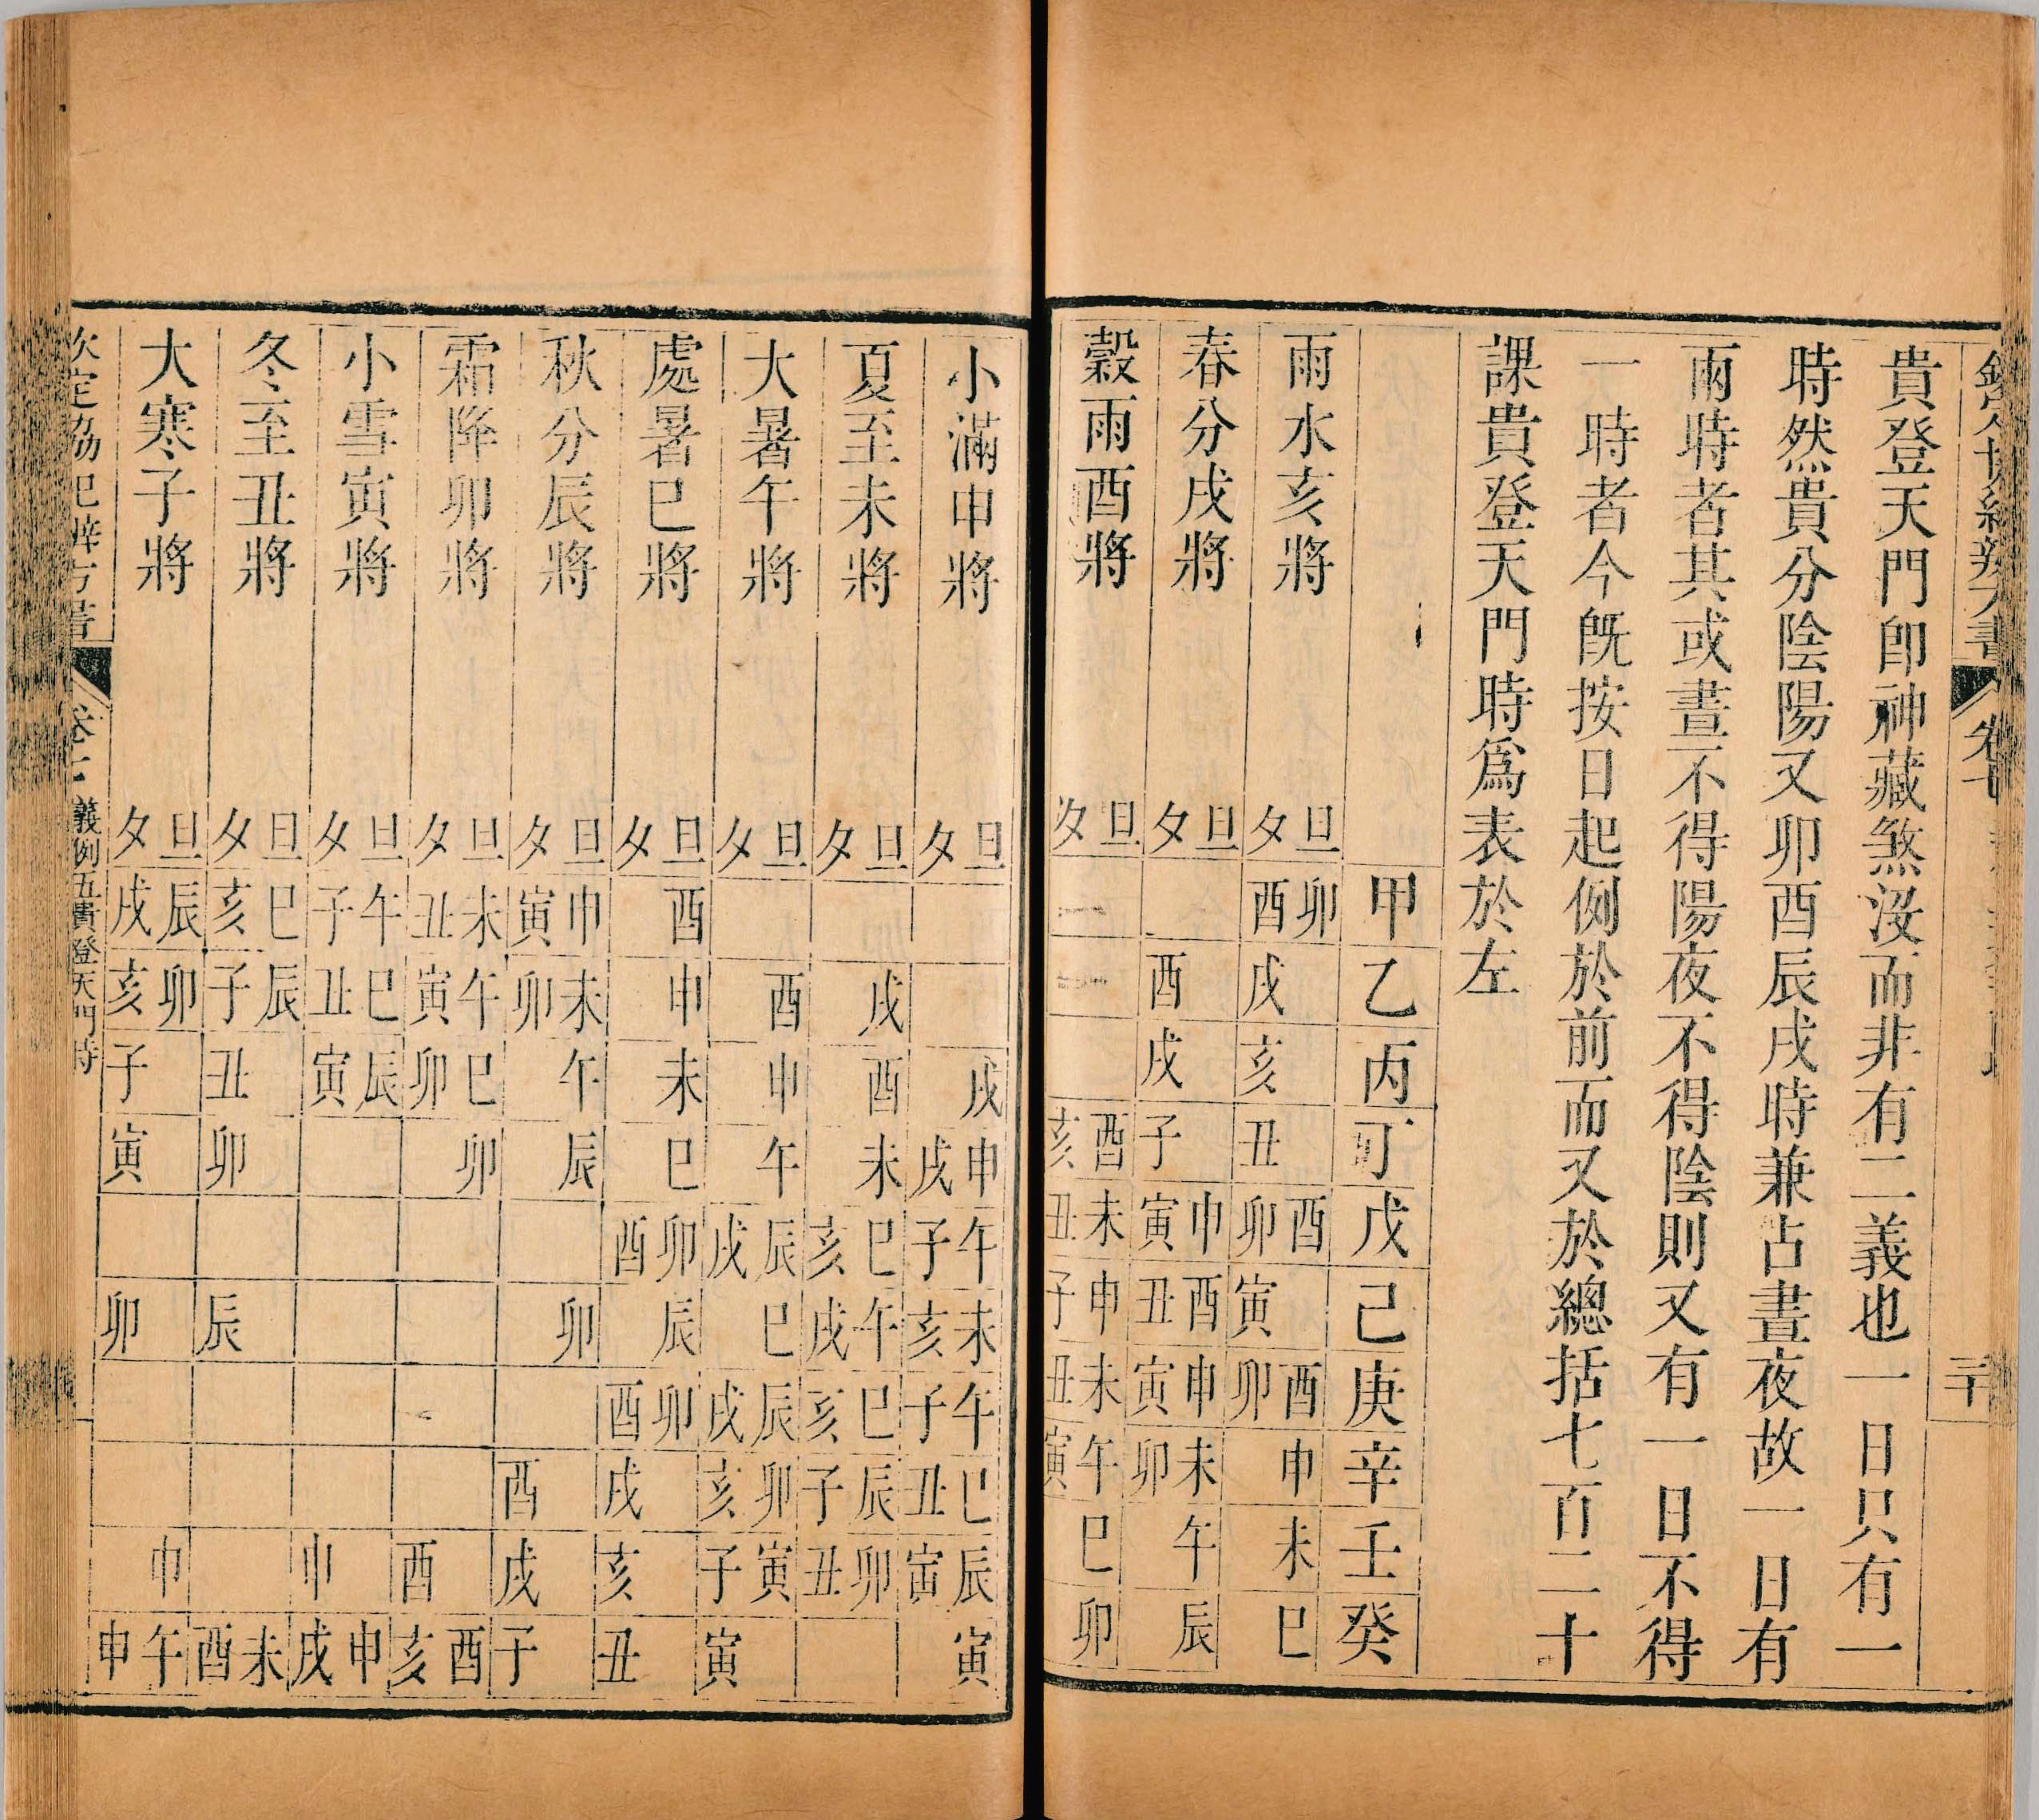 欽定協紀辨方書 卷十
貴登天門卽神藏煞沒而非有二義也一日只有一
時然貴分陰陽又卯酉辰戌時兼占晝夜故一日有
兩時者其或晝不得陽夜不得陰則又有一日不得
一時者今旣按日起例於前而又於總括七百二十
課貴登天門時爲表於左
甲乙丙丁戊己庚辛壬癸
雨水亥將
旦卯酉酉申未巳
夕酉戌亥丑卯寅卯
春分戌將
旦申酉申未午辰
夕酉戌子寅丑寅卯
穀雨酉將
旦酉未申未午巳卯
夕亥丑子丑寅
小滿申將
旦戌申午未午巳辰寅
夕戌子亥子丑寅
夏至未將
旦戌酉未巳午巳辰卯
夕亥戌亥子丑
大暑午將
旦酉申午辰巳辰卯寅
夕戌戌亥子寅
處暑巳將
旦酉申未巳卯辰卯
夕酉酉戌亥丑
秋分辰將
旦申未午辰卯
夕寅卯酉戌子
霜降卯將
旦未午巳卯酉
夕丑寅卯酉亥
小雪寅將
旦午巳辰申
夕子丑寅申戌
冬至丑將
旦巳辰未
夕亥子丑卯辰酉
大寒子將
旦辰卯申午
夕戌亥子寅卯申
欽定協紀辨方書 卷十 義例五貴登天門時